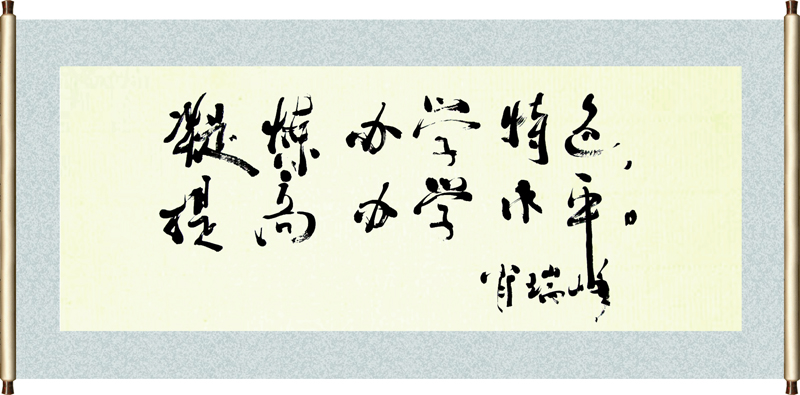 凝炼办学特色，
提高办学水平。
肖瑞峰